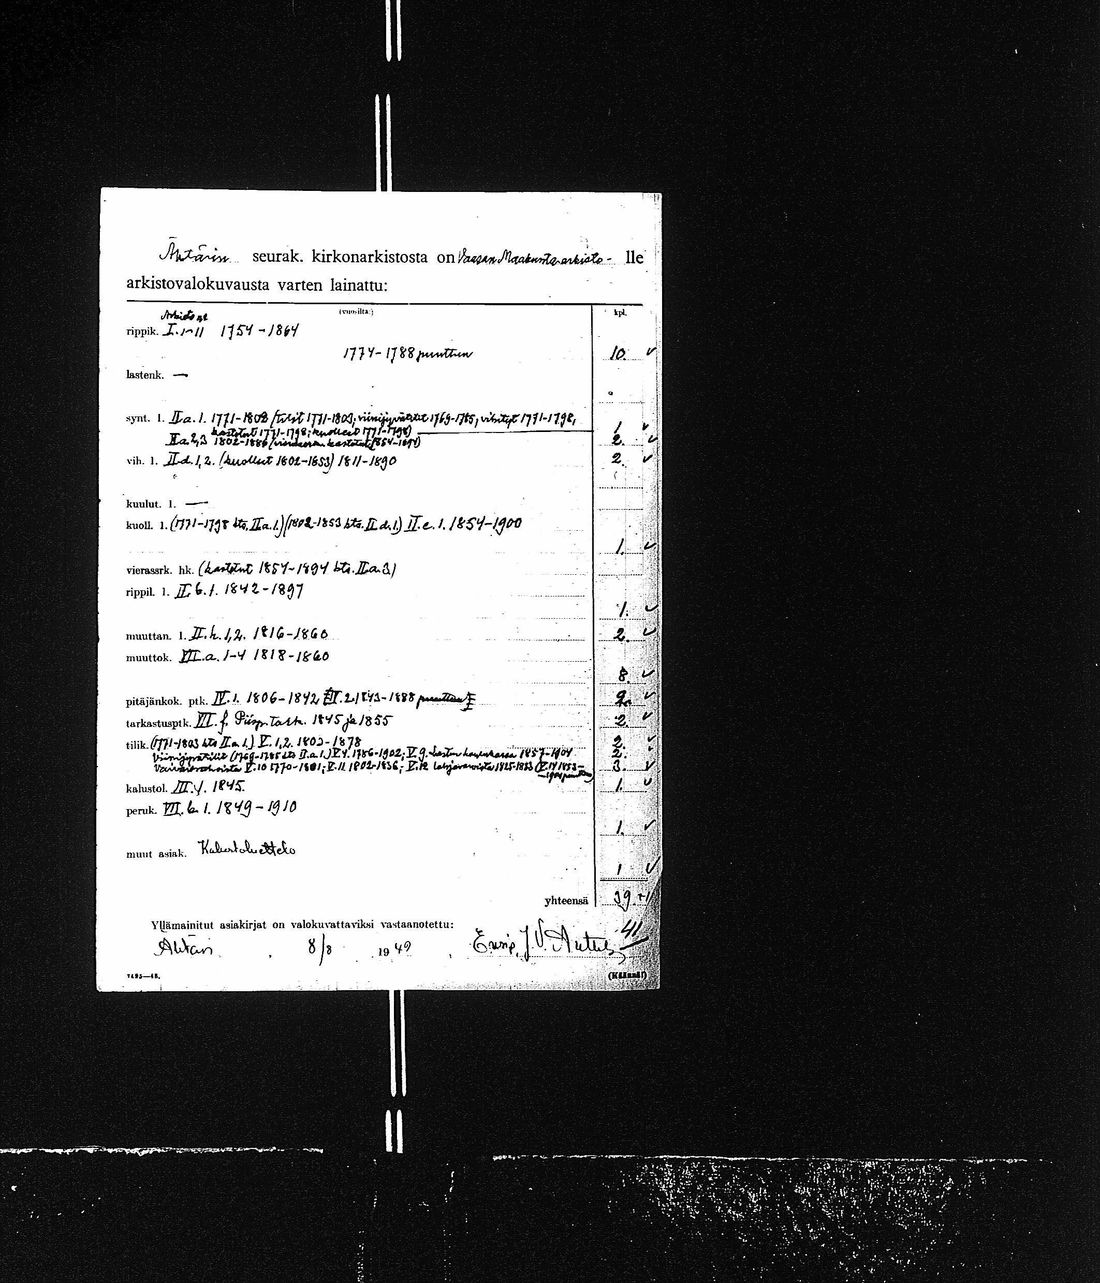 Ähtärin seurak. kirkonarkistosta on Vaasan Maakunta-arkisto- lle
arkistovalokuvausta varten lainattu:
(vuosilta:) kpl.
rippik. I. 1-11 1754-1864
1774-1788 puuttuu 10.
lastenk. —
synt. l. II.a.1. 1771-1802 (tilit 1771-1803; 1769-1785; vihityt 1771-1798,
kastetut 1771-1798; kuolleet 1771-1798) 1.
II.a.2,3 1802-1886 kastetut 1854-1894) 2.
vih. l. II.d.1,2. (kuolleet 1802-1853) 1811-1890 2.
kuulut. l. —
kuoll. l. (1771-1798 kts. II.a.1.) (1802-1853 kts. II.d.1) II.e.1. 1854-1900
1.
vierassrk. hk. (kastetut 1854-1894 kts. II.a.3)
rippil. l. II.b.1. 1842-1897
1.
muuttan. l. II.h.1,2. 1816-1860 2.
muuttok. VII.a. 1-4 1818-1860
8.
pitäjänkok. ptk. IV.1. 1806-1842 1843-1888 puuttuu
tarkastusptk. VII.f. Piisp.tark. 1845 ja 1855 2.
tilik. (1771-1803 kts II.a.1.) V.1,2. 1802-1878 2.
(1769-1785 kts II.a.1.) V.4. 1786-1902; V.9. 1857-1904 2.
V.10 1770-1801; V.11. 1802-1836; V.12. 3.
kalustol. III. 1845. 1.
peruk. VII.b.1. 1849-1910
1.
muut asiak. Kalustoluettelo
1
yhteensä 39.+1
Yllämainitut asiakirjat on valokuvattaviksi vastaanotettu: 41
Ähtäri, 8/8 1949.
7495—48. (Käännä!)